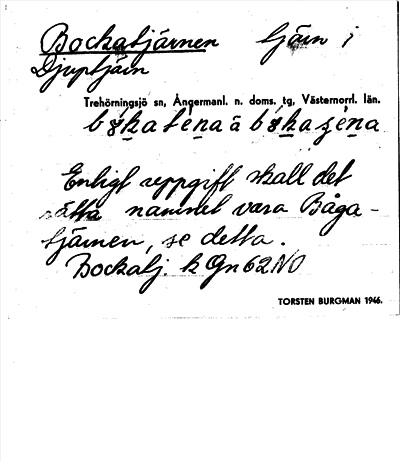 Bockabjärnen tjärn i
Djuptjärn
Trehörningsjö sn, Ångermanl. n. doms. tg, Västernorrl. län.
Enligt uppgift skall det
rätta namnet vara Båga-
tjärnen, se detta.
Bockatj. k Gn 62 NO
TORSTEN BURGMAN 1946.